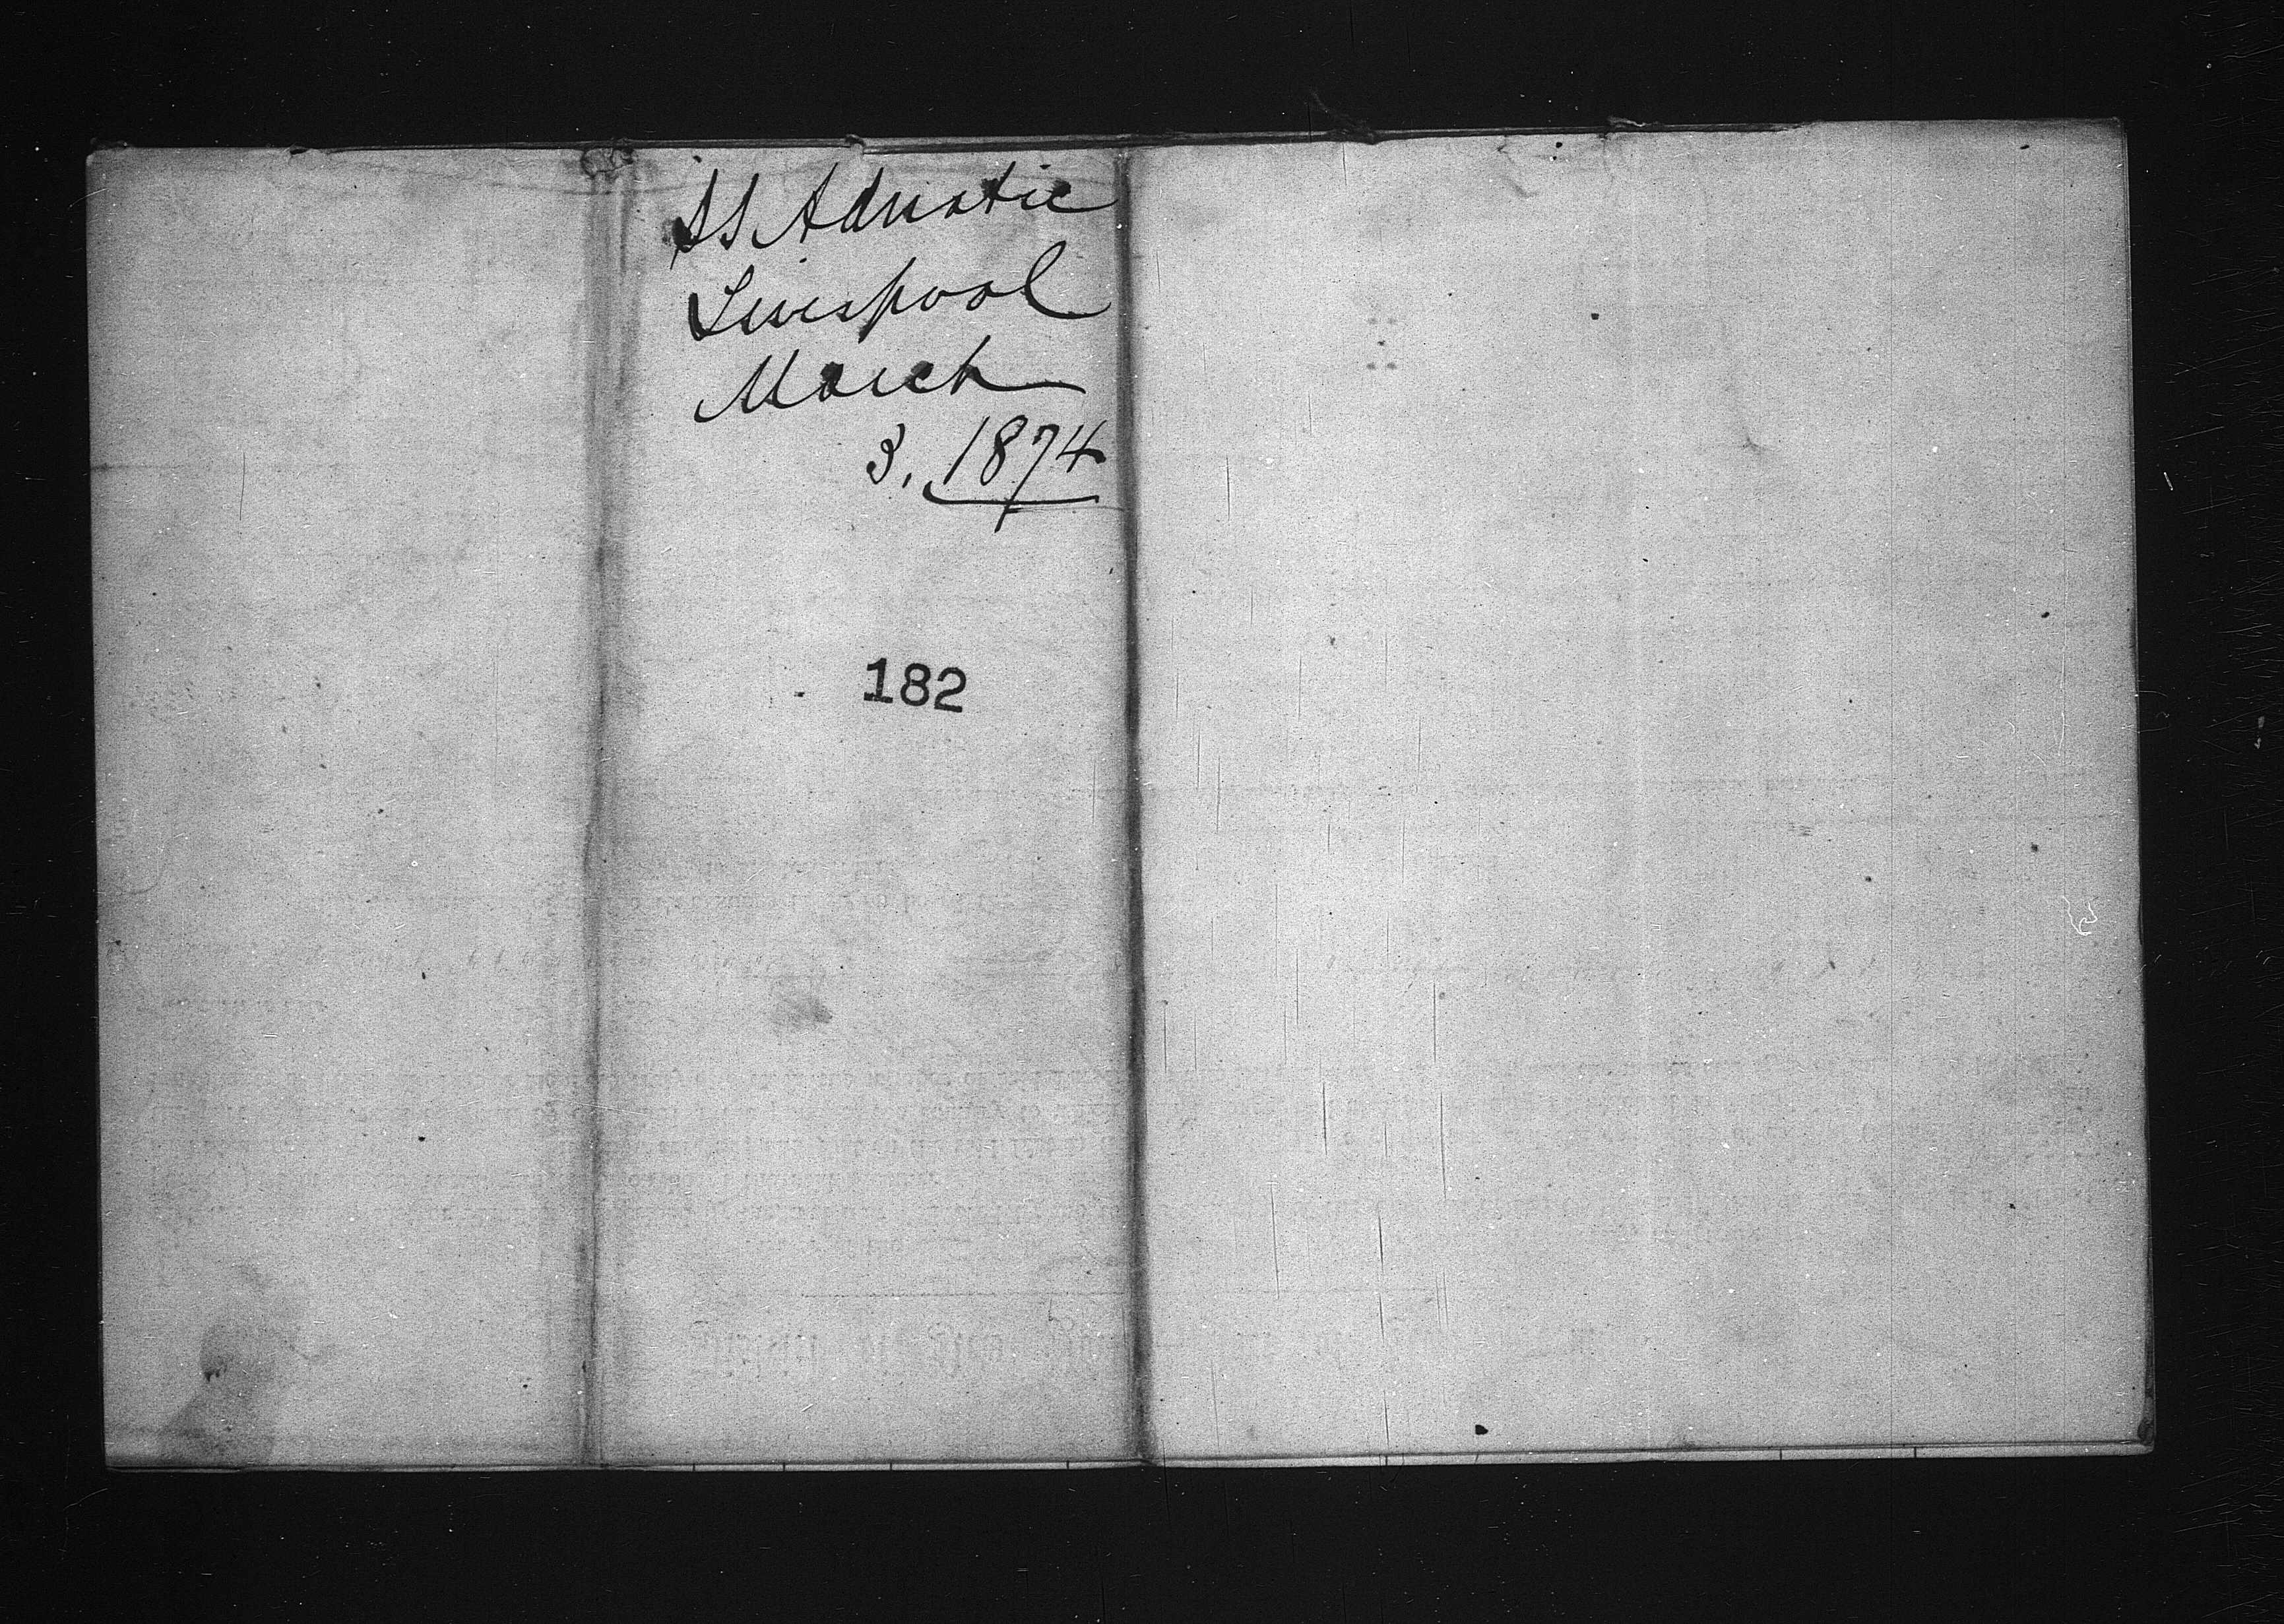 SS Adriatic
Liverpool
March
3, 1874
182